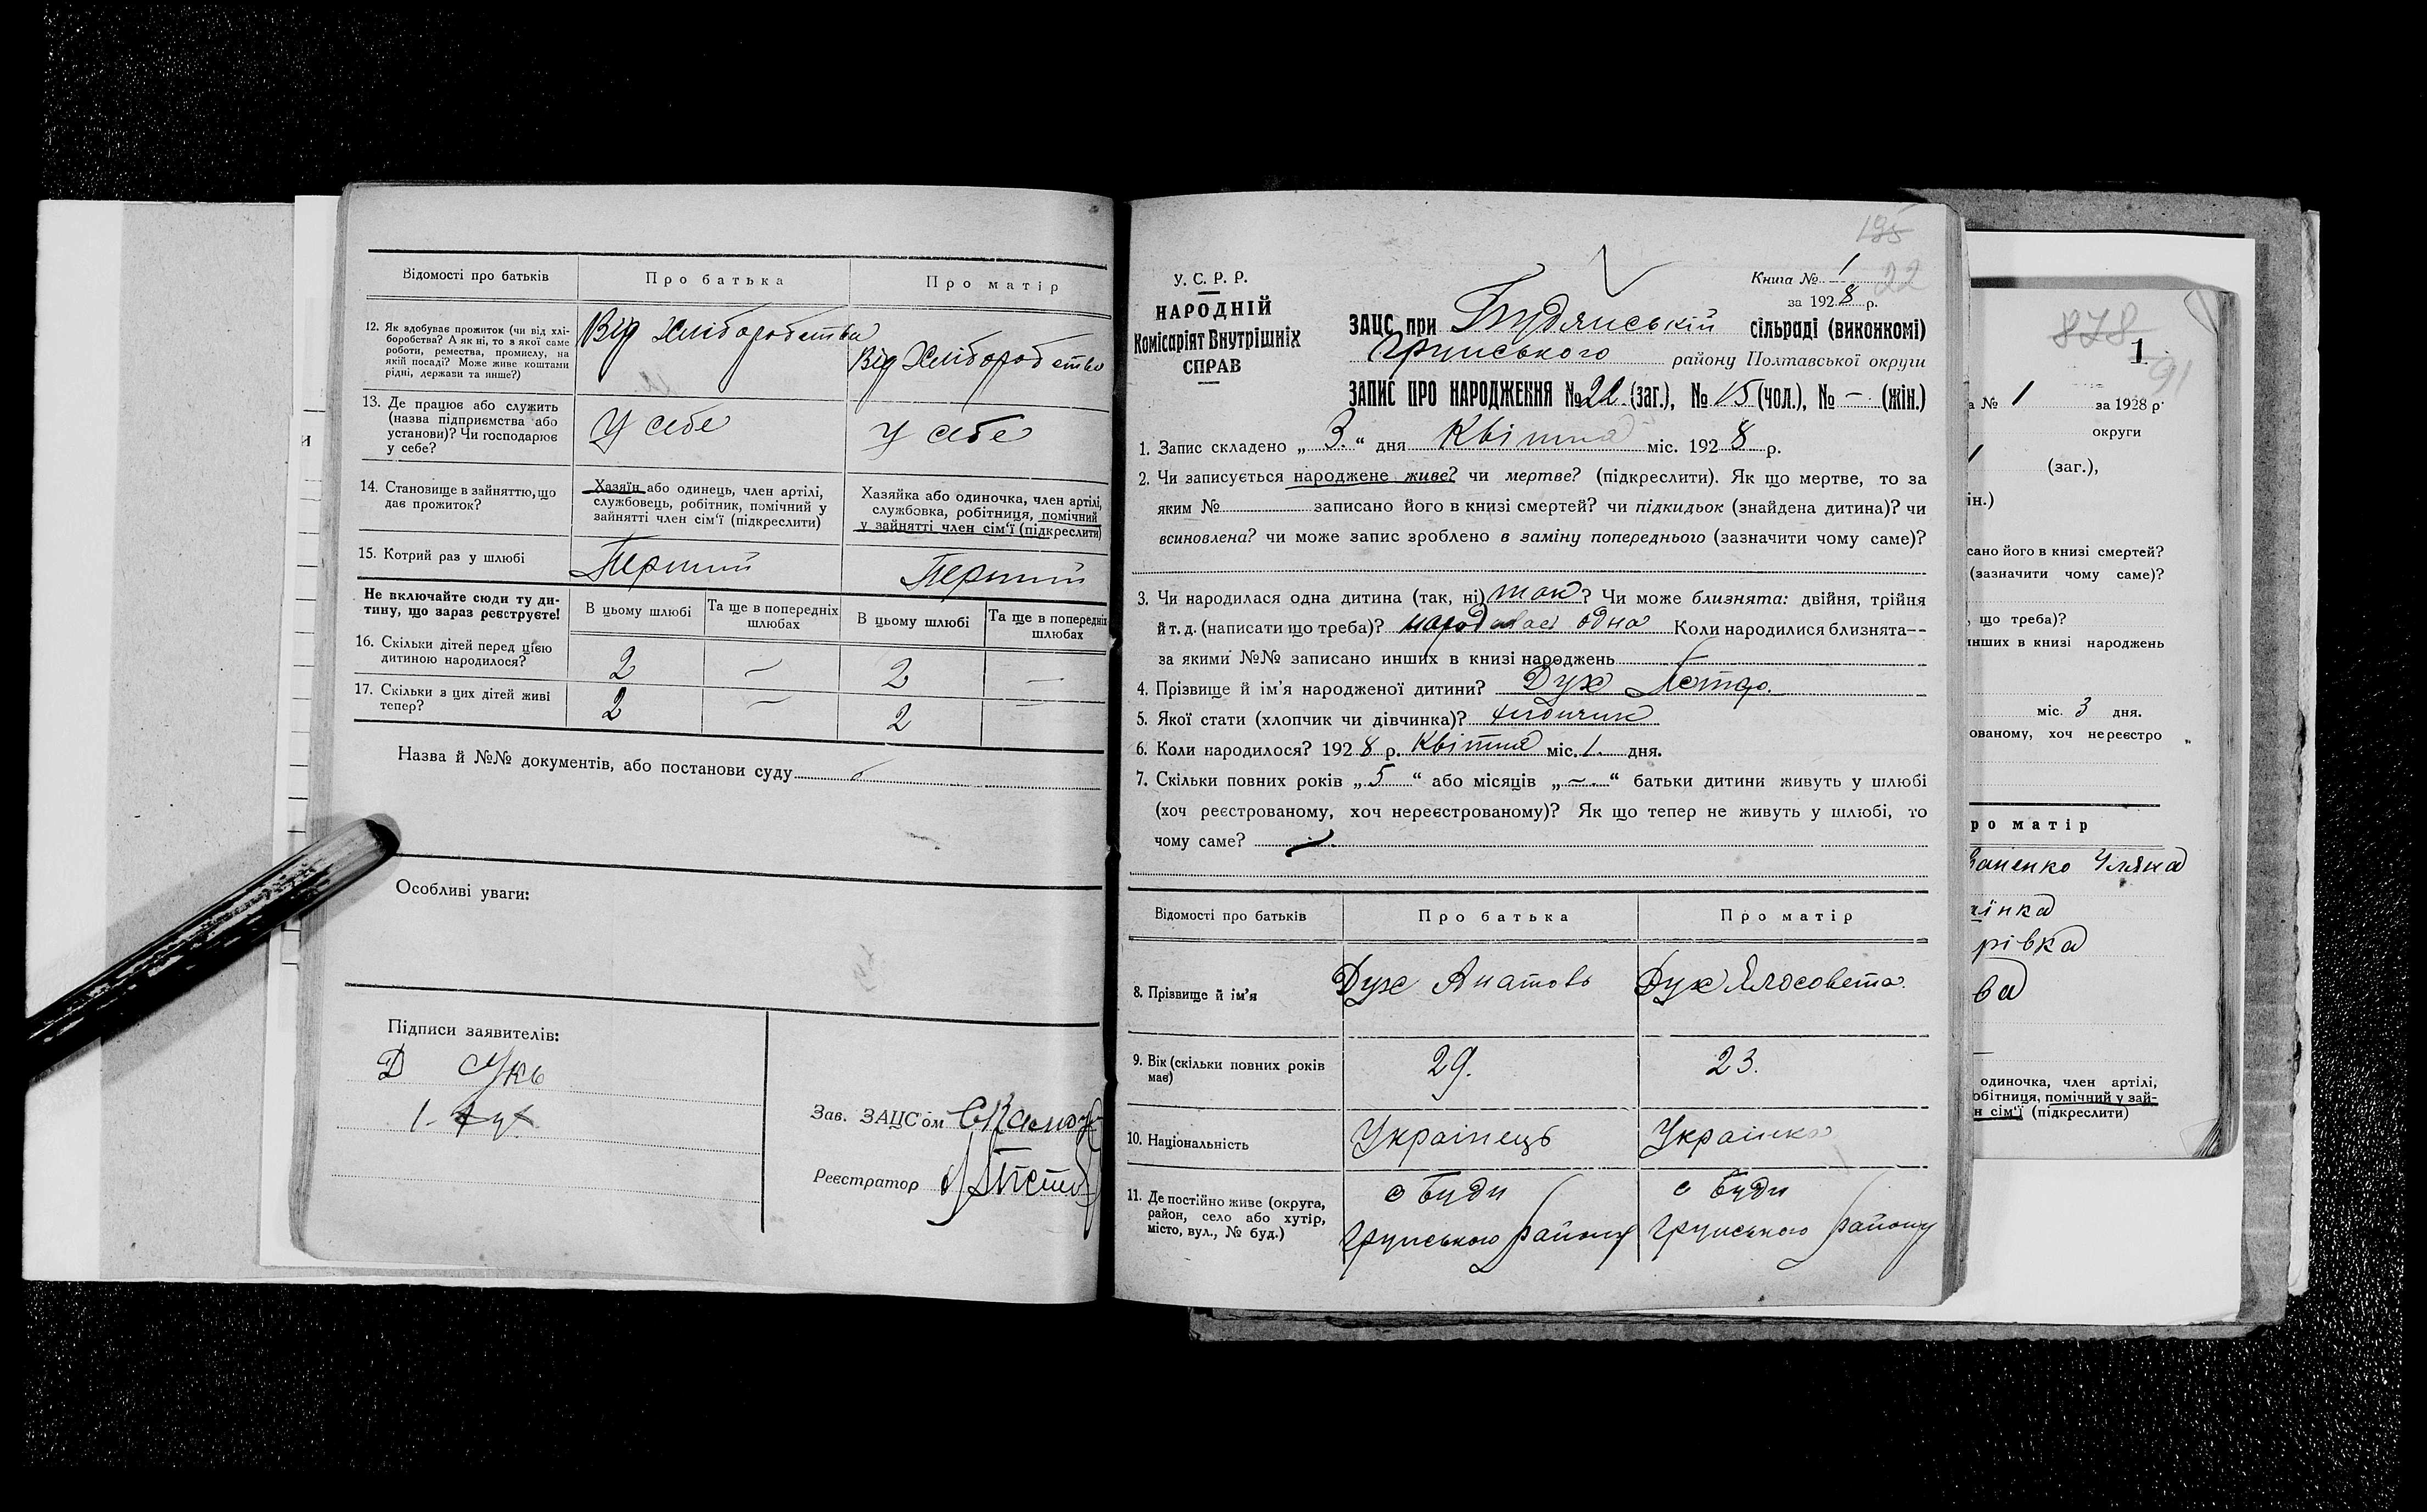 Відомості про батьків
Про батька
Про матір
12. Як здобуває прожиток (чи від хлі-
боробства? А як ні, то з якої саме
роботи, ремества, промислу, на
якій посаді? Може живе коштами
рідні, держави та инше?)
Від Хліборобства
Від Хліборобства
13. Де працює або служить
(назва підприємства або
установи)? Чи господарює
у себе?
У себе
У себе
14. Становище в зайняттю, що
дає прожиток?
Хазяїн або одинець, член артілі,
службовець, робітник, помічний у
зайнятті член сім'ї (підкреслити)
Хазяйка або одиночка, член артілі,
службовка, робітниця, помічний
у зайнятті член сім'ї (підкреслити)
15. Котрий раз у шлюбі
Перший
Перший
Не включайте сюди ту ди-
тину, що зараз реєструєте!
В цьому шлюбі
Та ще в попередніх
шлюбах
В цьому шлюбі
Та ще в попередніх
шлюбах
16. Скільки дітей перед цією
дитиною народилося?
2 — 2 —
17. Скільки з цих дітей живі
тепер?
2 — 2 —
Назва й №№ документів, або постанови суду
Особливі уваги:
Підписи заявителів:
Зав. ЗАЦС'ом
Реєстратор
195
22
У. С. Р. Р.
НАРОДНІЙ
Комісаріят Внутрішніх
СПРАВ
Книга № 1
за 1928 р.
ЗАЦС при Будянській сільраді (виконкомі)
Грунського району Полтавської округи
ЗАПИС ПРО НАРОДЖЕННЯ № 22 (заг.), № 15 (чол.), № — (жін.)
1. Запис складено „3.“ дня Квітня міс. 1928 р.
2. Чи записується народжене живе? чи мертве? (підкреслити). Як що мертве, то за
яким № записано його в книзі смертей? чи підкидьок (знайдена дитина)? чи
всиновлена? чи може запис зроблено в заміну попереднього (зазначити чому саме)?
3. Чи народилася одна дитина (так, ні) так? Чи може близнята: двійня, трійня
й т. д. (написати що треба)? одна Коли народилися близнята--
за якими №№ записано инших в книзі народжень
4. Прізвище й ім'я народженої дитини? Дух Петро.
5. Якої стати (хлопчик чи дівчинка)? хлопчик
6. Коли народилося? 1928 р. Квітня міс. 1. дня.
7. Скільки повних років „5“ або місяців „—“ батьки дитини живуть у шлюбі
(хоч реєстрованому, хоч нереєстрованому)? Як що тепер не живуть у шлюбі, то
чому саме?
Відомості про батьків
Про батька
Про матір
8. Прізвище й ім'я
Дух
Дух Ялосовета.
9. Вік (скільки повних років
має)
29.
23.
10. Національність
Українець
Українка
11. Де постійно живе (округа,
район, село або хутір,
місто, вул., № буд.)
с Буди
Грунського району
с Буди
Грунського району
878
1
91
№ 1 за 1928 р.
округи
(заг.),
ін.)
сано його в книзі смертей?
(зазначити чому саме)?
, що треба)?
инших в книзі народжень
міс. 3 дня.
ованому, хоч нереєстро
ро матір
Уляна
інка
рівка
ва
одиночка, член артілі,
обітниця, помічний у зай-
н сім'ї (підкреслити)